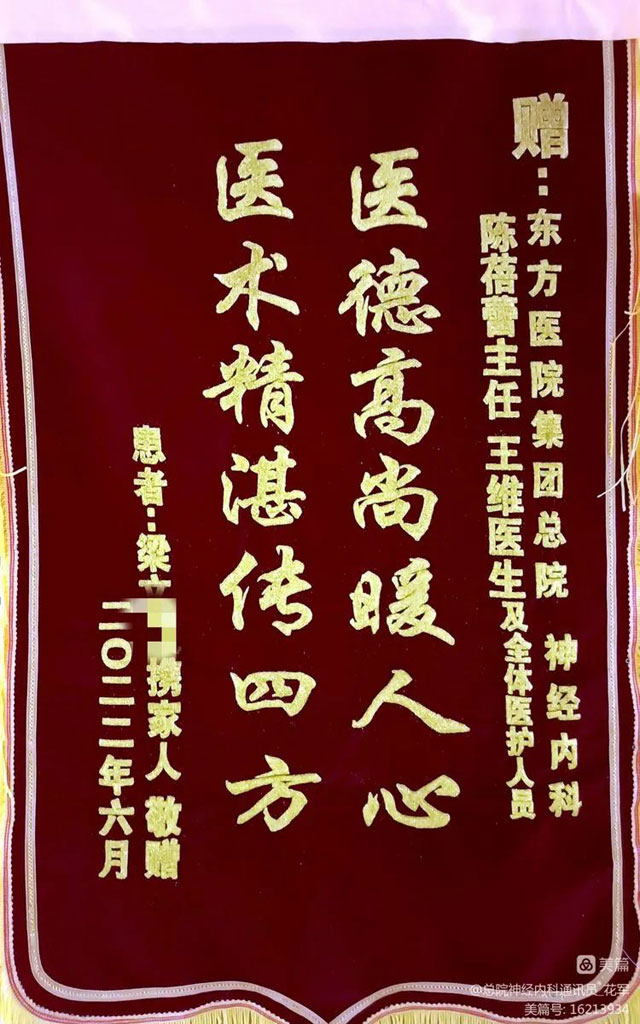 赠:东方医院集团总院 神经内科
陈蓓蕾主任 王维医生及全体医护人员
医德高尚暖人心
医术精湛传四方
患者:梁 携家人 敬赠
二〇二二年六月
美篇
@总院神经内科通讯员_花军
美篇号: 16213934